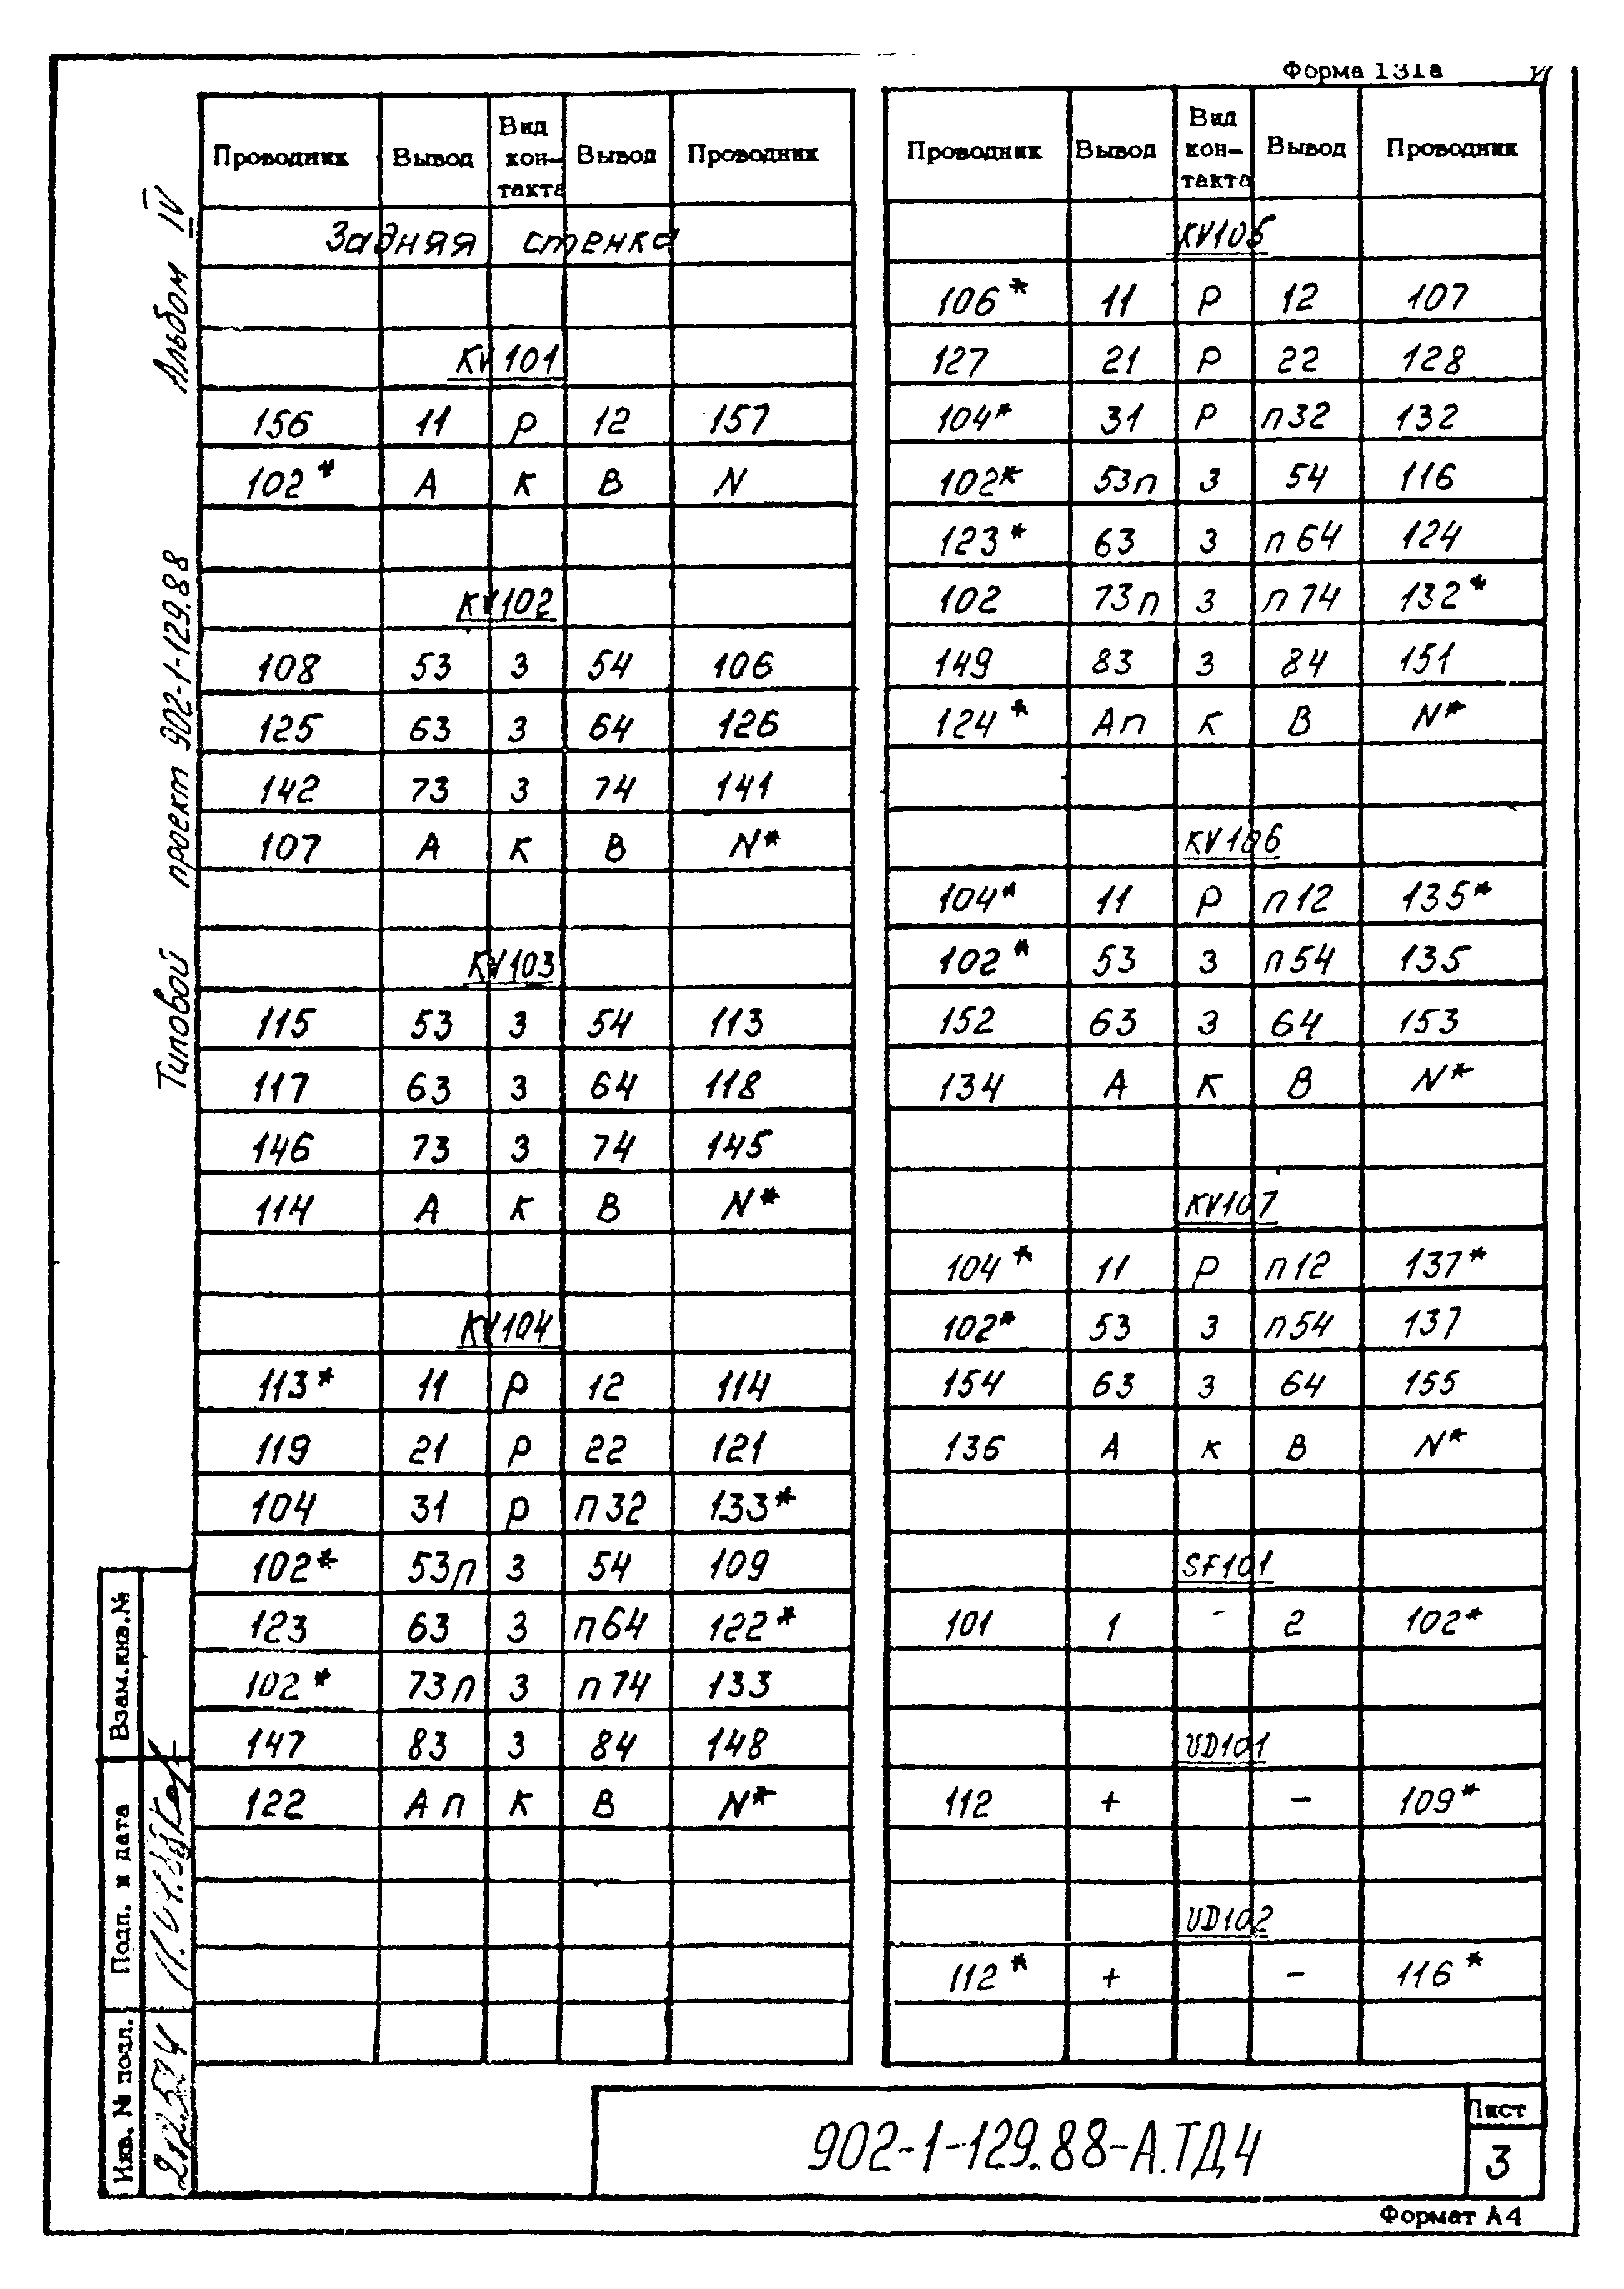 Форма 131а
Альбом IV
Типовой проект 902-1-129.88
Проводник Вывод Вид кон-такта Вывод Проводник
Задняя стенка
KV101
156 11 Р 12 157
102* А К В N
KV102
108 53 З 54 106
125 63 З 64 126
142 73 З 74 141
107 А К В N*
KV103
115 53 З 54 113
117 63 З 64 118
146 73 З 74 145
114 А К В N*
KV104
113* 11 Р 12 114
119 21 Р 22 121
104 31 Р п32 133*
102* 53п З 54 109
123 63 З п64 122*
102* 73п З п74 133
147 83 З 84 148
122 Ап К В N*
Проводник Вывод Вид кон-такта Вывод Проводник
KV105
106* 11 Р 12 107
127 21 Р 22 128
104* 31 Р п32 132
102* 53п З 54 116
123* 63 З п64 124
102 73п З п74 132*
149 83 З 84 151
124* Ап К В N*
KV106
104* 11 Р п12 135*
102* 53 З п54 135
152 63 З 64 153
134 А К В N*
KV107
104* 11 Р п12 137*
102* 53 З п54 137
154 63 З 64 155
136 А К В N*
SF101
101 1 - 2 102*
VD101
112 + − 109*
VD102
112* + − 116*
Взам.инв.№
Подп. и дата
Инв. № подл.
902-1-129.88-А.ТД4
Лист
3
Формат А4